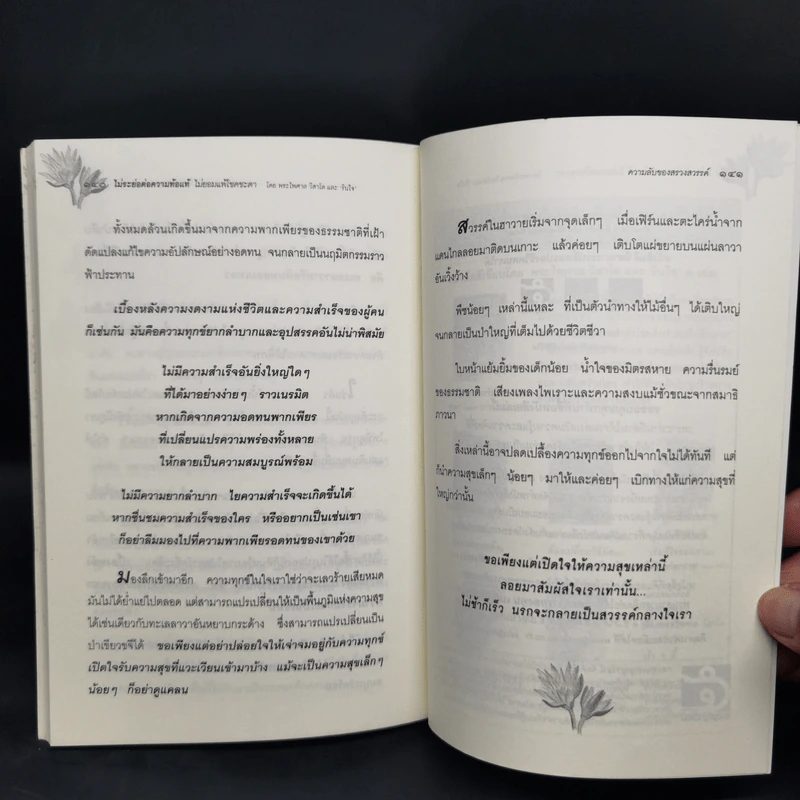 ๑๔๐ ไม่ระย่อต่อความท้อแท้ ไม่ยอมแพ้โชคชะตา โดย พระไพศาล วิสาโล และ 'รินใจ'
ทั้งหมดล้วนเกิดขึ้นมาจากความพากเพียรของธรรมชาติที่เฝ้า
ดัดแปลงแก้ไขความอัปลักษณ์อย่างอดทน จนกลายเป็นนฤมิตกรรมราว
ฟ้าประทาน
เบื้องหลังความงดงามแห่งชีวิตและความสำเร็จของผู้คน
ก็เช่นกัน มันคือความทุกข์ยากลำบากและอุปสรรคอันไม่น่าพิสมัย
ไม่มีความสำเร็จอันยิ่งใหญ่ใดๆ
ที่ได้มาอย่างง่ายๆ ราวเนรมิต
หากเกิดจากความอดทนพากเพียร
ที่เปลี่ยนแปรความพร่องทั้งหลาย
ให้กลายเป็นความสมบูรณ์พร้อม
ไม่มีความยากลำบาก ไยความสำเร็จจะเกิดขึ้นได้
หากชื่นชมความสำเร็จของใคร หรืออยากเป็นเช่นเขา
ก็อย่าลืมมองไปที่ความพากเพียรอดทนของเขาด้วย
มองลึกเข้ามาอีก ความทุกข์ในใจเราใช่ว่าจะเลวร้ายเสียหมด
มันไม่ได้ย่ำแย่ไปตลอด แต่สามารถแปรเปลี่ยนให้เป็นพื้นภูมิแห่งความสุข
ได้เช่นเดียวกับทะเลลาวาอันหยาบกระด้าง ซึ่งสามารถแปรเปลี่ยนเป็น
ป่าเขียวขจีได้ ขอเพียงแต่อย่าปล่อยใจให้เจ่าจมอยู่กับความทุกข์
เปิดใจรับความสุขที่แวะเวียนเข้ามาบ้าง แม้จะเป็นความสุขเล็กๆ
น้อยๆ ก็อย่าดูแคลน
ความลับของสรวงสวรรค์ ๑๔๑
สวรรค์ในฮาวายเริ่มจากจุดเล็กๆ เมื่อเฟิร์นและตะไคร่น้ำจาก
แดนไกลลอยมาติดบนเกาะ แล้วค่อยๆ เติบโตแผ่ขยายบนแผ่นลาวา
อันเวิ้งว้าง
พืชน้อยๆ เหล่านี้แหละ ที่เป็นตัวนำทางให้ไม้อื่นๆ ได้เติบใหญ่
จนกลายเป็นป่าใหญ่ที่เต็มไปด้วยชีวิตชีวา
ใบหน้าแย้มยิ้มของเด็กน้อย น้ำใจของมิตรสหาย ความรื่นรมย์
ของธรรมชาติ เสียงเพลงไพเราะและความสงบแม้ชั่วขณะจากสมาธิ
ภาวนา
สิ่งเหล่านี้อาจปลดเปลื้องความทุกข์ออกไปจากใจไม่ได้ทันที แต่
ก็นำความสุขเล็กๆ น้อยๆ มาให้และค่อยๆ เบิกทางให้แก่ความสุขที่
ใหญ่กว่านั้น
ขอเพียงแต่เปิดใจให้ความสุขเหล่านี้
ลอยมาสัมผัสใจเราเท่านั้น...
ไม่ช้าก็เร็ว นรกจะกลายเป็นสวรรค์กลางใจเรา